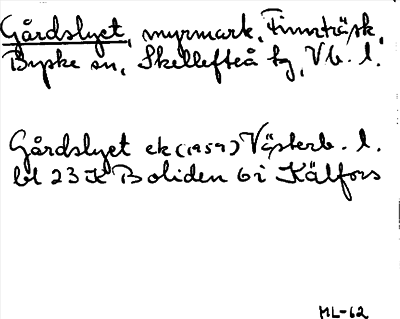 Gårdslyet, myrmark, Finnträsk,
Byske sn, Skellefteå kg, Vb. l.
Gårdslyet ek (1959) Västerb. l.
bl 23 K Boliden 6i Kälfors
ML-62